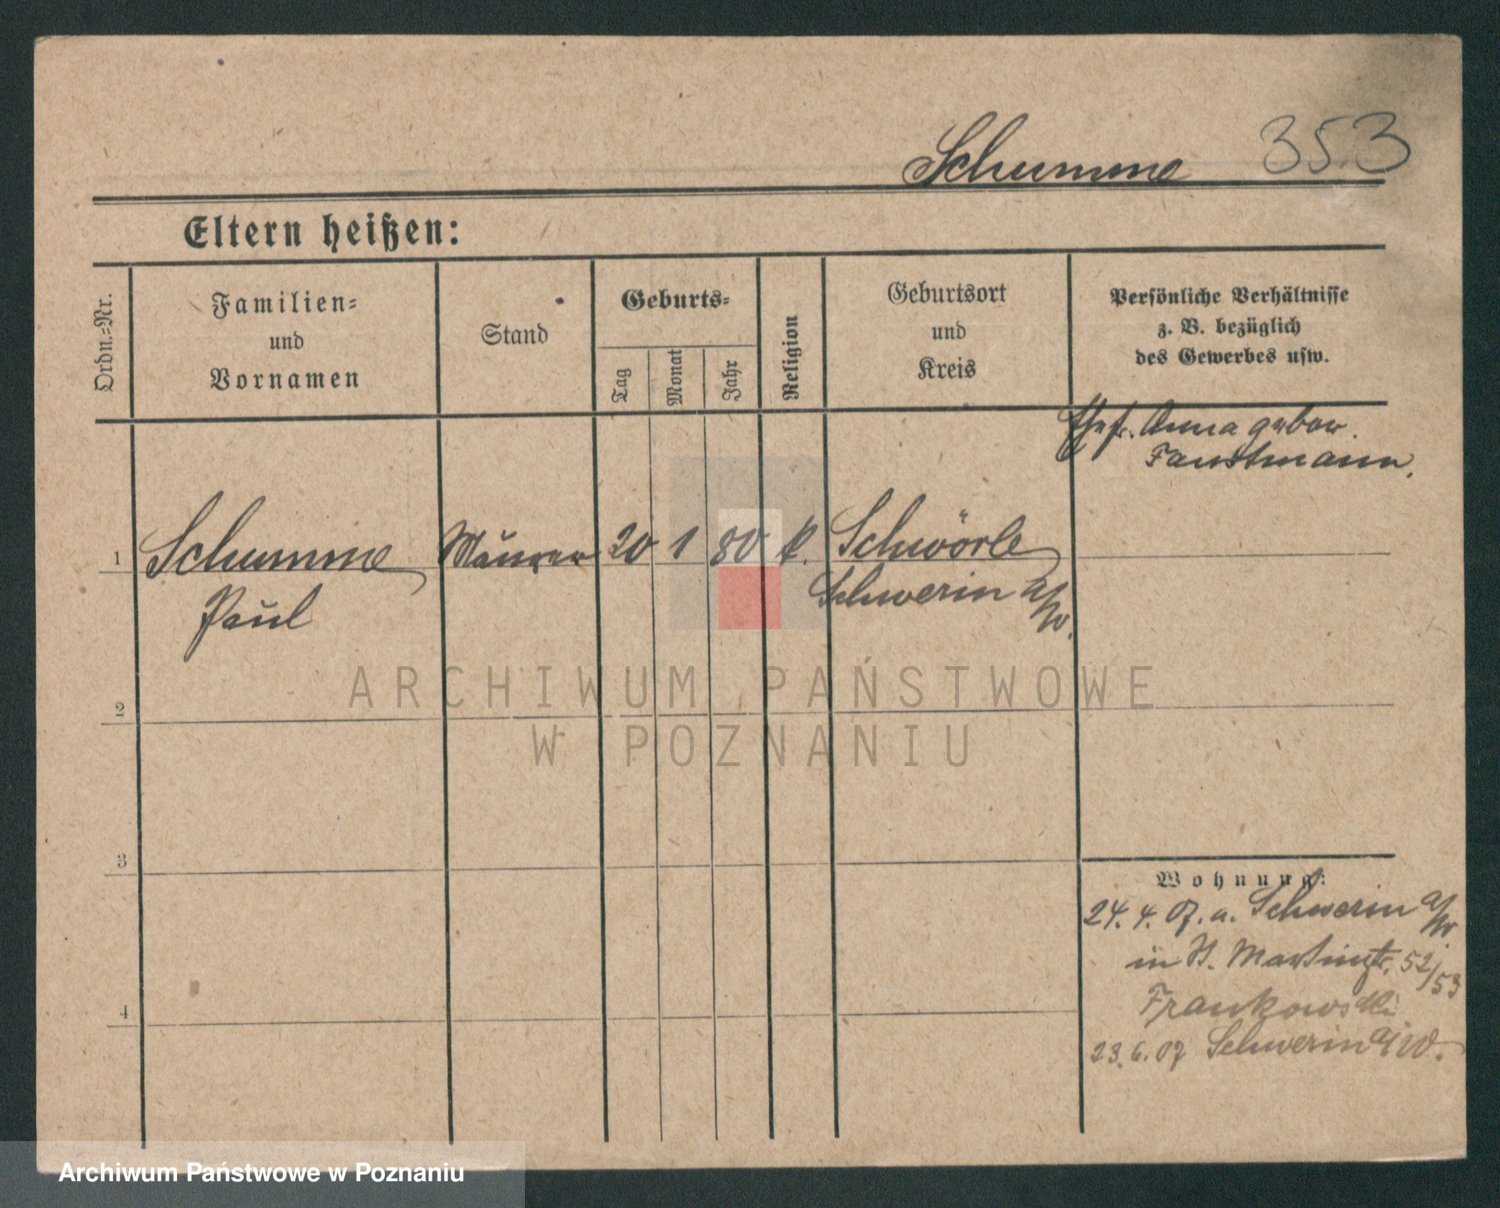 Schumme 353
Eltern heißen:
Ordn.=Nr.
Familien=
und
Vornamen
Stand
Geburts=
Tag
Monat
Jahr
Religion
Geburtsort
und
Kreis
Persönliche Verhältnisse
z. B. bezüglich
des Gewerbes usw.
Ehefr. Anna gebor.
Faustmann.
1 Schumme Maurer 20 1 80 k. Schwörle
Paul Schwerin a/W.
2
3
4
Wohnung:
24. 4. 07. a. Schwerin a/W.
in St. Martinstr. 52/53
Frankowski
23. 6. 07 Schwerin a/W.
ARCHIWUM PAŃSTWOWE
W POZNANIU
Archiwum Państwowe w Poznaniu